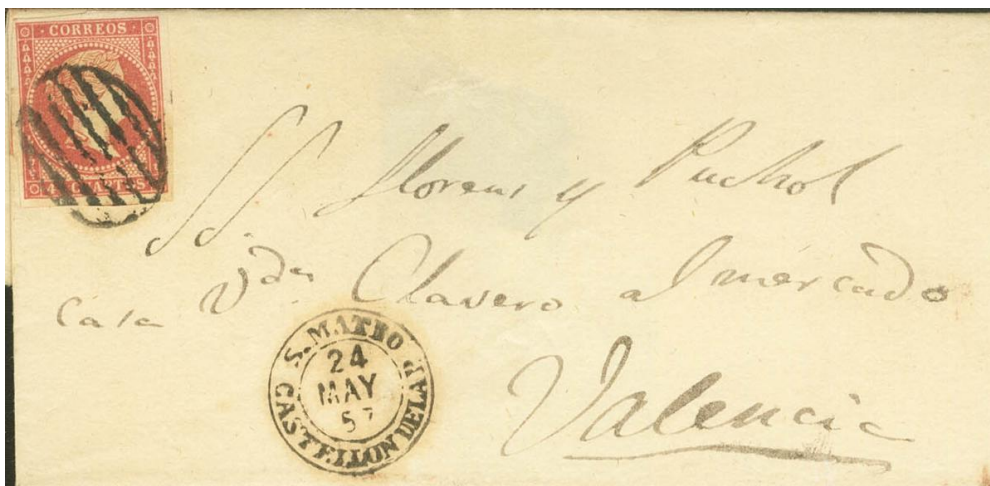 CORREOS
4 CUARTOS
SS. Llorens y Puchol
Casa Vda Clavero al mercado
Valencia
S. MATEO
24
MAY
57
CASTELLON DE LA P.